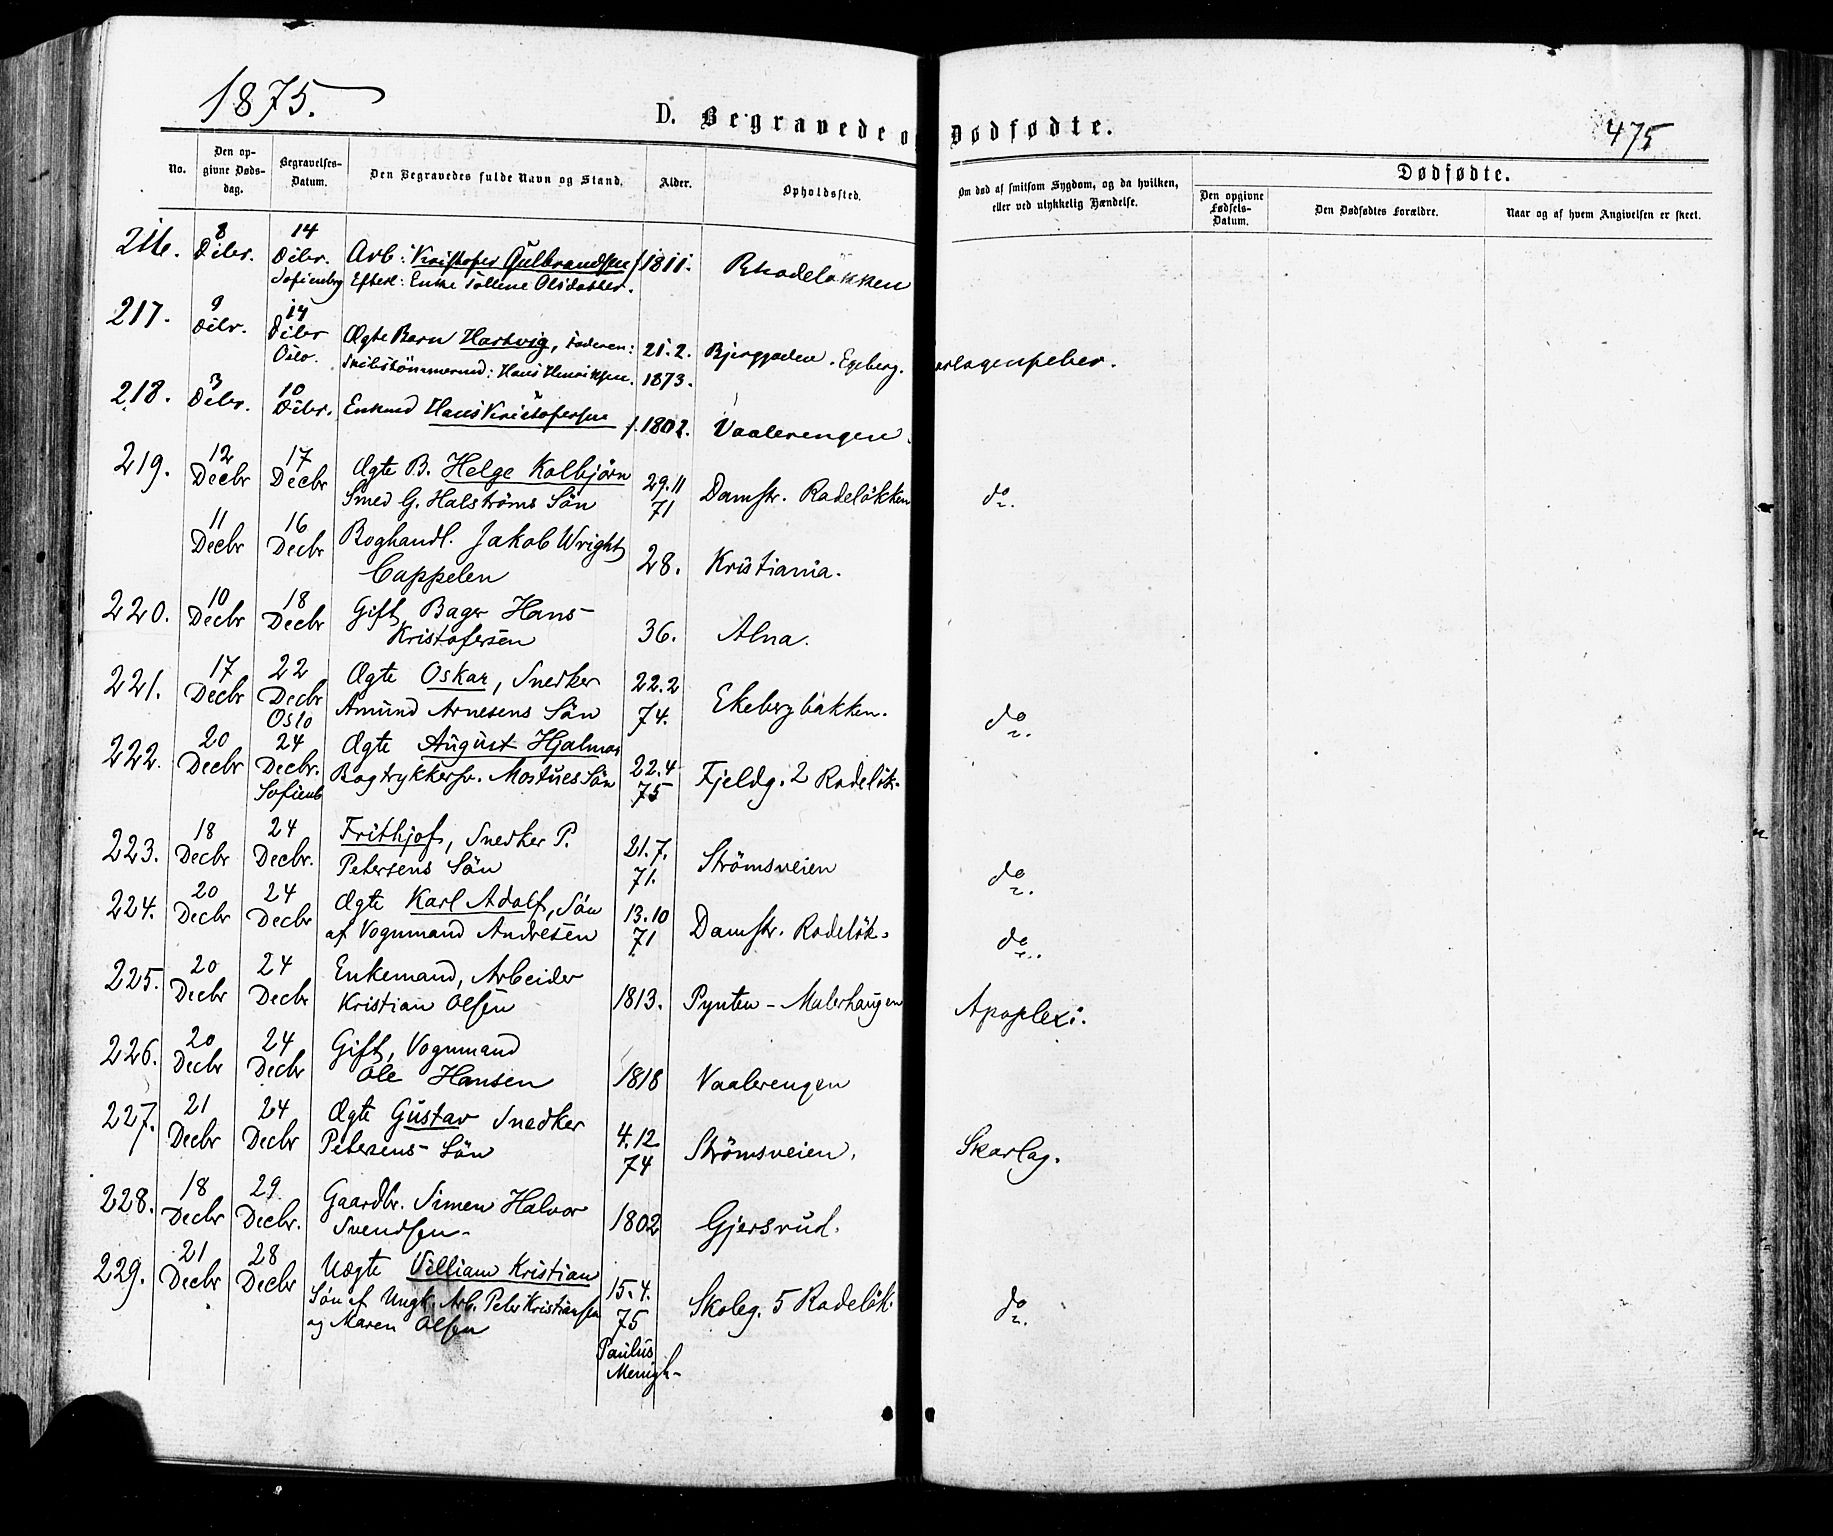 1875.
D. Begravede o Dødfødte.
475
No.
Den op-
givne Døds-
dag.
Begravelses-
Datum.
Den Begravedes fulde Navn og Stand.
Alder.
Opholdssted.
Om død af smitsom Sygdom, og da hvilken,
eller ved ulykkelig Hændelse.
Dødfødte.
Den opgivne
Fødsels-
Datum.
Den Dødfødtes Forældre.
Naar og af hvem Angivelsen er skeet.
216. 8 Dcbr. 14 Dcbr. Arb: Kristofer Gulbrandsen f. 1811. Rhodeløkken
Sofienbg Efterl: Enke Olsdatter.
217. 9 Dcbr. 14 Dcbr Oslo. Ægte Barn Hartvig, Faderen: 21.2. Bjerggaden. Egeberg. arlagensfeber.
Skibstømmermd: Hans Henriksen. 1873.
218. 3 Dcbr. 10 Dcbr. Enkemd Hans Kristofersen f. 1802. Vaalerengen.
219. 12 Decbr 17 Decbr Ægte B. Helge Kolbjørn 29.11 Damstr. Rodeløkken do.
Smed G. Halstrøms Søn 71
11 Decbr 16 Decbr Boghandl. Jakob Wright
Cappelen 28. Kristiania.
220. 10 Decbr 18 Decbr Gift, Bager Hans
Kristofersen 36. Alna.
221. 17 Decbr 22 Decbr Oslo Ægte Oskar, Snedker 22.2 Ekebergbakken. do.
Amund Arnesens Søn 74.
222. 20 Decbr 24 Decbr. Sofienb Ægte August Hjalmar 22.4 Fjeldg. 2 Rodeløk.
Bogtrykkersv. Mostues Søn 75
223. 18 Decbr 24 Decbr. Frithjof, Snedker P. 21.7. Strømsveien do.
Petersens Søn 71.
224. 20 Decbr 24 Decbr Ægte Karl Adolf, Søn 13.10 Damstr. Rodeløk. do.
af Vognmand Andresen 71
225. 20 Decbr 24 Decbr Enkemand, Arbeider
Kristian Olsen 1813. Pynten - Malerhaugen Apoplexi.
226. 20 Decbr 24 Decbr Gift, Vognmand
Ole Hansen 1818 Vaalerengen
227. 21 Decbr 24 Decbr Ægte Gustav Snedker 4.12 Strømsveien. Skarlag.
Petersens Søn 74
228. 18 Decbr 29 Decbr. Gaardbr. Simen Halvor
Svendsen 1802 Gjersrud.
229. 21 Decbr 28 Decbr Uægte Villiam Kristian 15.4. Skoleg. 5 Rodeløk. do.
Søn af Ungk. Arb. Peter Kristiansen 75
og Maren Olsen
Paulus
Menigh-